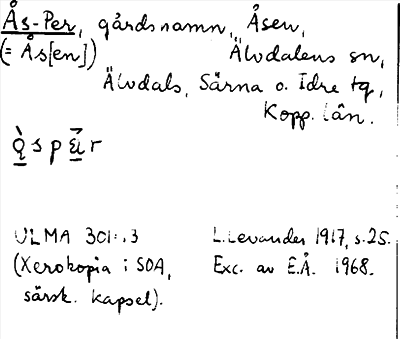 Ås-Per, gårdsnamn, Åsen,
(= Ås[en]) Älvdalens sn,
Älvdals, Särna o. Idre tg,
Kopp. län.
ULMA 301: 3 L. Levander 1917, s. 25.
(Xerokopia i SOA, Exc. av E.Å. 1968.
särsk. kapsel).